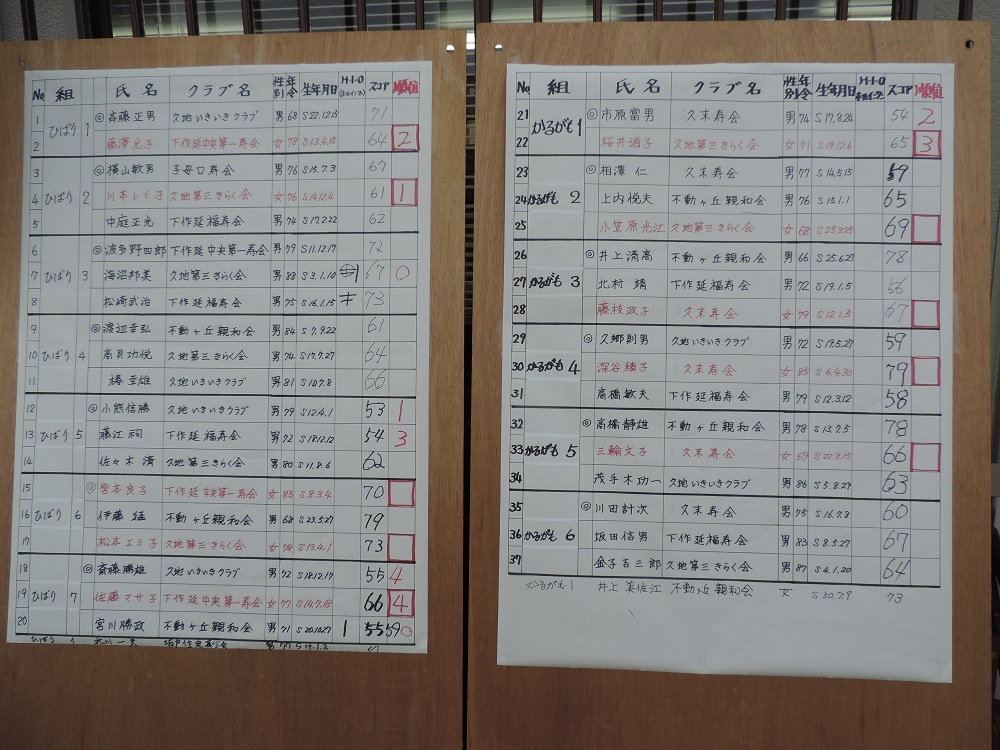 No 組 氏名 クラブ名 性別 年令 生年月日 H-I-O (ホールインワン) スコア 順位
1 ひばり 1 ◎斉藤正男 久地いきいきクラブ 男 68 S22.12.15 71
2 藤澤光子 下作延中央第一寿会 女 78 S13.4.18 64 2
3 ◎横山敏男 子母口寿会 男 76 S15.7.3 67
4 ひばり 2 川本レイ子 久地第三きらく会 女 76 S14.12.4 61 1
5 中庭正光 下作延福寿会 男 74 S17.2.22 62
6 ◎波多野四郎 下作延中央第一寿会 男 79 S11.12.17 72
7 ひばり 3 海沼邦美 久地第三きらく会 男 88 S3.1.10 67 0
8 松崎武治 下作延福寿会 男 75 S16.1.15 73
9 ◎渡辺幸弘 不動ヶ丘親和会 男 84 S7.9.22 61
10 ひばり 4 高貝功悦 久地第三きらく会 男 74 S17.7.27 64
11 椿幸雄 久地いきいきクラブ 男 81 S10.7.8 66
12 ◎小熊信勝 久地いきいきクラブ 男 79 S12.4.1 53 1
13 ひばり 5 藤江祠 下作延福寿会 男 72 S18.12.12 54 3
14 佐々木清 久地第三きらく会 男 80 S11.8.6 62
15 ◎宮本良子 下作延中央第一寿会 女 83 S8.3.4 70
16 ひばり 6 伊藤猛 不動ヶ丘親和会 男 68 S23.5.27 79
17 松本エミ子 久地第三きらく会 女 78 S13.4.1 73
18 ◎斎藤勝雄 久地いきいきクラブ 男 72 S18.12.17 55 4
19 ひばり 7 佐藤マサ子 下作延中央第一寿会 女 77 S14.7.18 66 4
20 宮川勝政 不動ヶ丘親和会 男 71 S20.10.27 1 55 59 0
ひばり 1 男
No 組 氏名 クラブ名 性別 年令 生年月日 H-I-O スコア 順位
21 かるがも1 ◎市原富男 久末寿会 男 74 S17.9.24 54 2
22 桜井道子 久地第三きらく会 女 71 S19.12.6 65 3
23 ◎相澤仁 久末寿会 男 77 S14.5.15 59
24 かるがも 2 上内悦夫 不動ヶ丘親和会 男 76 S15.1.1 65
25 小笠原光江 久地第三きらく会 女 68 S23.3.25 69
26 ◎井上清高 不動ヶ丘親和会 男 66 S25.6.27 78
27 かるがも 3 北村靖 下作延福寿会 男 72 S19.1.5 56
28 藤枝政子 久末寿会 女 79 S12.1.5 67
29 ◎久郷則男 久地いきいきクラブ 男 72 S19.5.27 59
30 かるがも 4 深谷綾子 久末寿会 女 85 S6.4.30 79
31 高橋敏夫 下作延福寿会 男 79 S12.3.12 58
32 ◎高橋静雄 不動ヶ丘親和会 男 78 S13.7.5 78
33 かるがも 5 三輪文子 久末寿会 女 69 S22.8.15 66
34 茂手木功一 久地いきいきクラブ 男 86 S5.8.29 63
35 ◎川田計次 久末寿会 男 75 S16.7.8 60
36 かるがも 6 坂田信男 下作延福寿会 男 83 S8.5.27 67
37 金子吉三郎 久地第三きらく会 男 87 S4.1.20 64
かるがも1 井上美佐江 不動ヶ丘親和会 女 S30.7.9 73